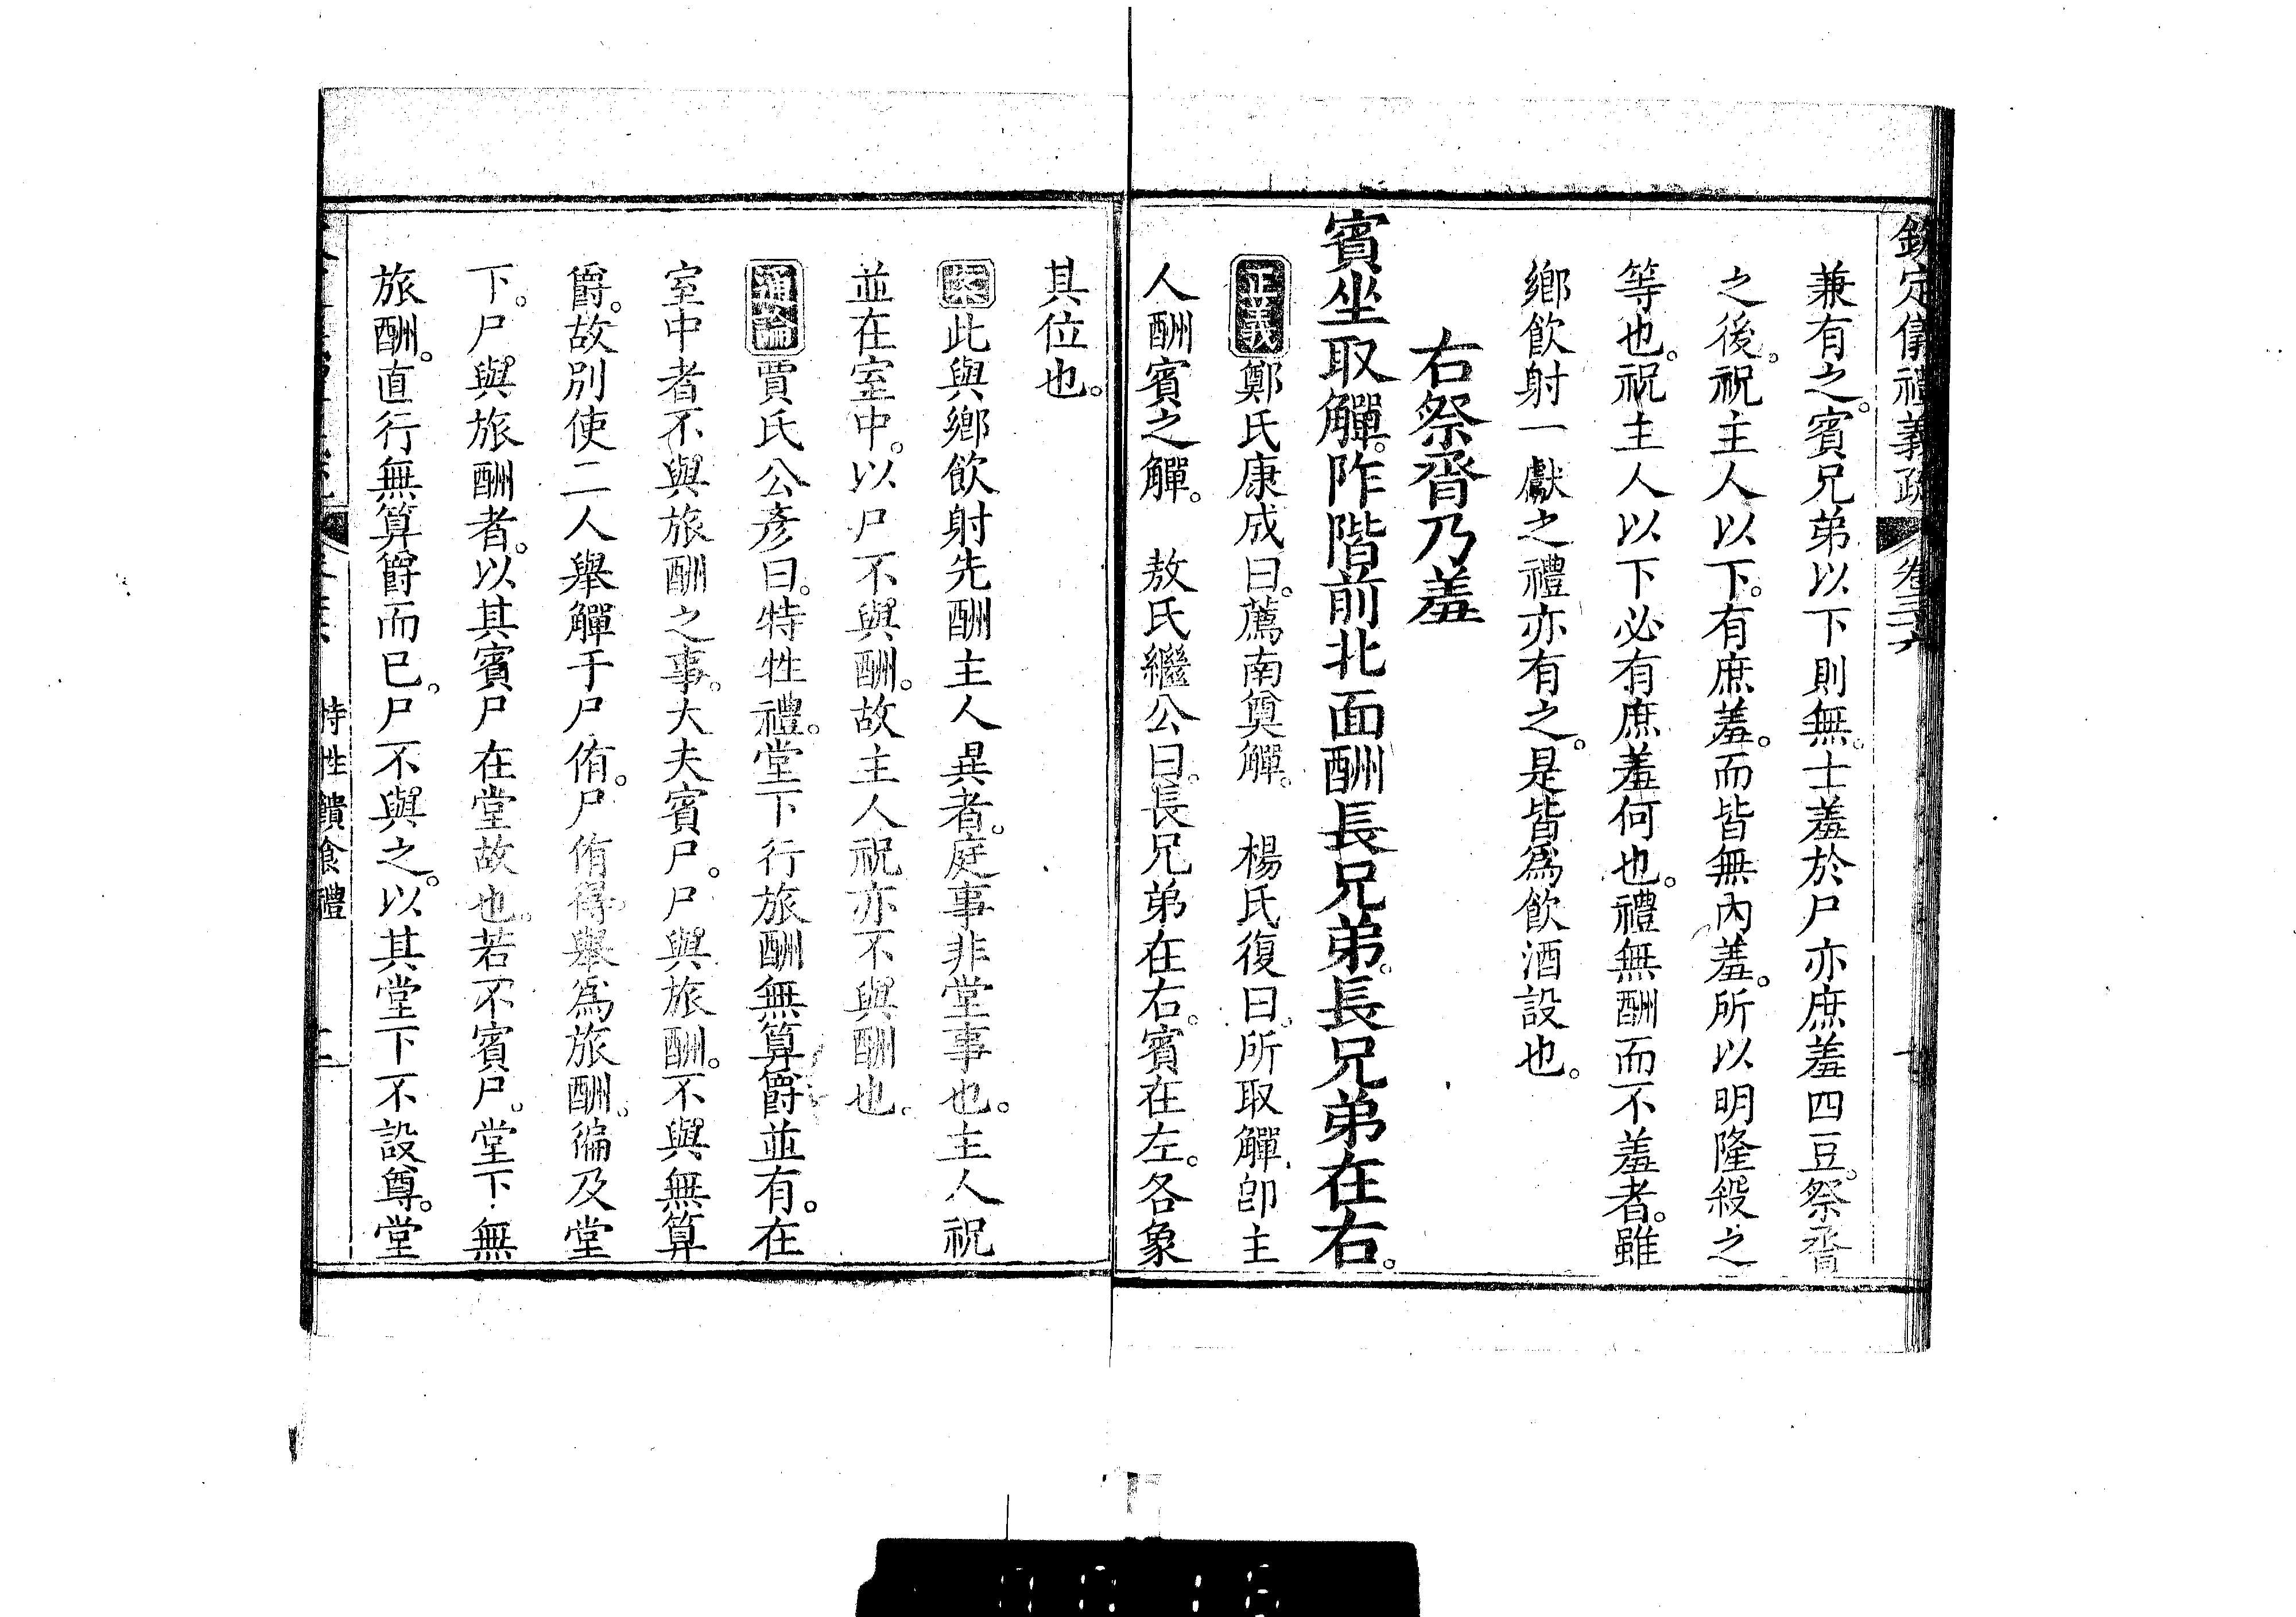 欽定儀禮義疏　卷三十六
兼有之。賓兄弟以下則無。士羞於尸亦庶羞四豆。祭脀
之後。祝主人以下。有庶羞。而皆無內羞。所以明隆殺之
等也。祝主人以下必有庶羞何也。禮無酬而不羞者。雖
鄉飲射一獻之禮亦有之。是皆爲飲酒設也。
右祭脀乃羞
賓坐取觶。阼階前北面酬長兄弟。長兄弟在右。
正義鄭氏康成曰。薦南奠觶。　楊氏復曰。所取觶。卽主
人酬賓之觶。　敖氏繼公曰。長兄弟在右。賓在左。各象
其位也。
案此與鄉飲射先酬主人異者。庭事非堂事也。主人祝
並在室中。以尸不與酬。故主人祝亦不與酬也。
通論賈氏公彥曰。特牲禮。堂下行旅酬無算爵並有。在
室中者不與旅酬之事。大夫賓尸。尸與旅酬。不與無算
爵。故別使二人舉觶于尸侑。尸侑得舉爲旅酬。徧及堂
下。尸與旅酬者。以其賓尸在堂故也。若不賓尸。堂下無
旅酬。直行無算爵而已。尸不與之。以其堂下不設尊。堂
特牲饋食禮